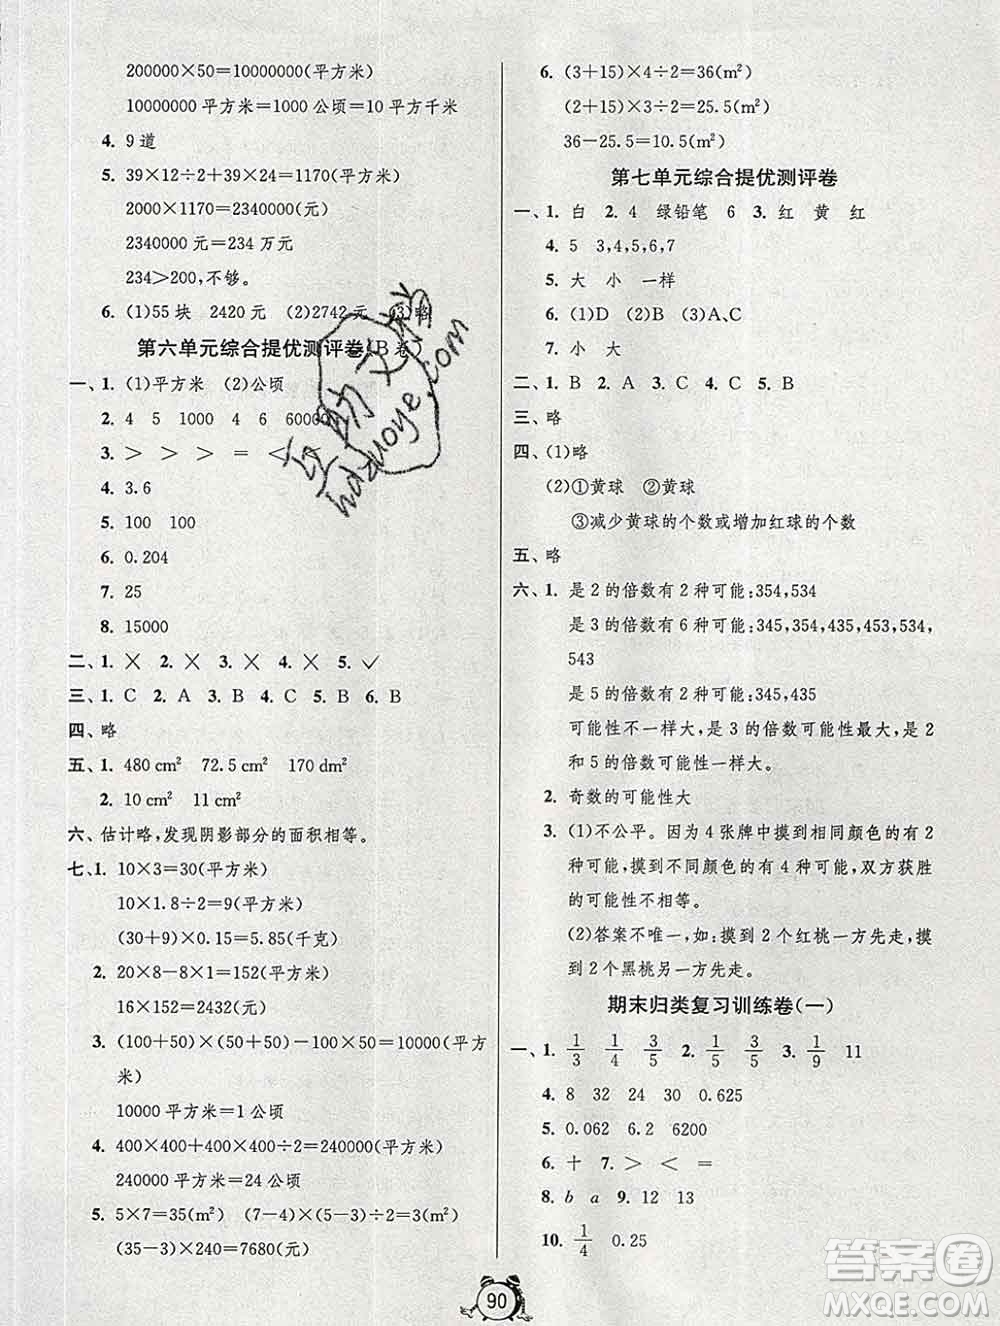 200000×50=10000000(平方米)
10000000 平方米=1000 公顷=10 平方千米
4. 9 道
5. 39×12÷2+39×24=1170(平方米)
2000×1170=2340000(元)
2340000 元=234 万元
234>200,不够。
6. (1)55 块 2420 元 (2)2742 元 (3)略
第六单元综合提优测评卷(B 卷)
一、1. (1)平方米 (2)公顷
2. 4 5 1000 4 6 60000
3. > > > = <
4. 3.6
5. 100 100
6. 0.204
7. 25
8. 15000
二、1. ✕ 2. ✕ 3. ✕ 4. ✕ 5. ✓
三、1. C 2. A 3. B 4. C 5. B 6. B
四、略
五、1. 480 cm² 72.5 cm² 170 dm²
2. 10 cm² 11 cm²
六、估计略,发现阴影部分的面积相等。
七、1. 10×3=30(平方米)
10×1.8÷2=9(平方米)
(30+9)×0.15=5.85(千克)
2. 20×8-8×1=152(平方米)
16×152=2432(元)
3. (100+50)×(50+50)-100×50=10000(平方
米)
10000 平方米=1 公顷
4. 400×400+400×400÷2=240000(平方米)
240000 平方米=24 公顷
5. 5×7=35(m²) (7-4)×(5-3)÷2=3(m²)
(35-3)×240=7680(元)
6. (3+15)×4÷2=36(m²)
(2+15)×3÷2=25.5(m²)
36-25.5=10.5(m²)
第七单元综合提优测评卷
一、1. 白 2. 4 绿铅笔 6 3. 红 黄 红
4. 5 3,4,5,6,7
5. 大 小 一样
6. (1)D (2)B (3)A、C
7. 小 大
二、1. B 2. A 3. C 4. C 5. B
三、略
四、(1)略
(2)①黄球 ②黄球
③减少黄球的个数或增加红球的个数
五、略
六、1. 是 2 的倍数有 2 种可能:354,534
是 3 的倍数有 6 种可能:345,354,435,453,534,
543
是 5 的倍数有 2 种可能:345,435
可能性不一样大,是 3 的倍数可能性最大,是 2
和 5 的倍数可能性一样大。
2. 奇数的可能性大
3. (1)不公平。因为 4 张牌中摸到相同颜色的有 2
种可能,摸到不同颜色的有 4 种可能,双方获胜
的可能性不相等。
(2)答案不唯一,如:摸到 2 个红桃一方先走,摸
到 2 个黑桃另一方先走。
期末归类复习训练卷(一)
一、1. 1/3 1/4 3/5 2. 1/5 3/5 3. 1/9 11
4. 8 32 24 30 0.625
5. 0.062 6.2 6200
6. 十 7. > < =
8. b a 9. 12 13
10. 1/4 0.25
90
作业精灵
hdzuoye.com
答案圈
MXQE.COM